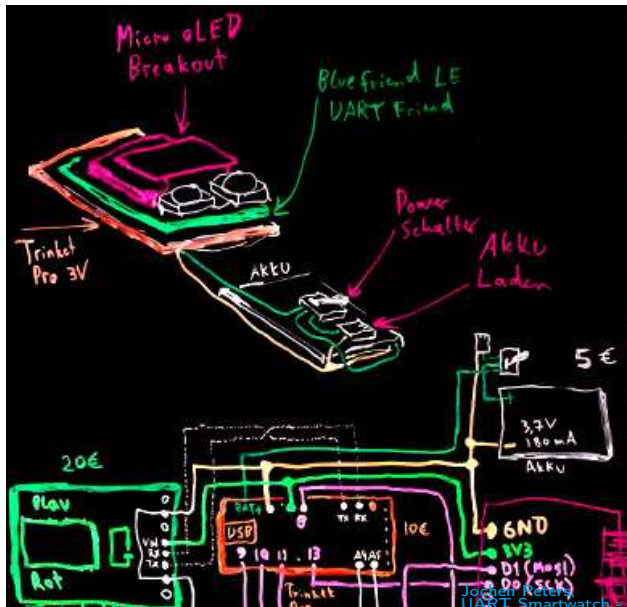 Micro OLED
Breakout
Bluefriend LE
UART Friend
Trinket
Pro 3V
Power
Schalter
Akku
Akku
Laden
5€
3,7V
180mA
Akku
20€
Blau
Rot
VIN
RX
TX
BAT+
8
TX RX
USB
10€
9 10 11 13 A4 A5
Trinket
Pro
GND
3V3
D1 (MOSI)
D0 (SCK)
Jochen Peters
UART Smartwatch